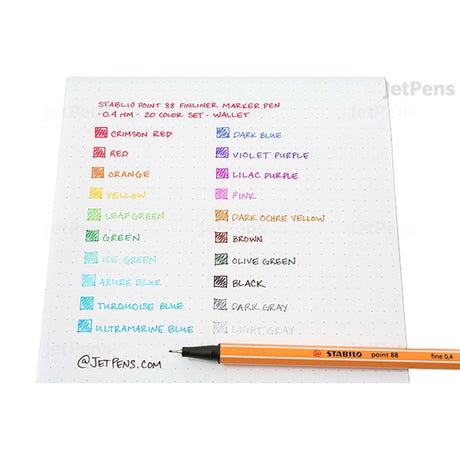 JetPens
STABLIO POINT 88 FINLINER MARKER PEN
- 0.4 MM - 20 COLOR SET - WALLET
CRIMSON RED
RED
ORANGE
YELLOW
LEAF GREEN
GREEN
ICE GREEN
AZURE BLUE
TURQUOISE BLUE
ULTRAMARINE BLUE
DARK BLUE
VIOLET PURPLE
LILAC PURPLE
PINK
DARK OCHRE YELLOW
BROWN
OLIVE GREEN
BLACK
DARK GRAY
LIGHT GRAY
@JETPENS.COM
STABILO point 88 fine 0,4